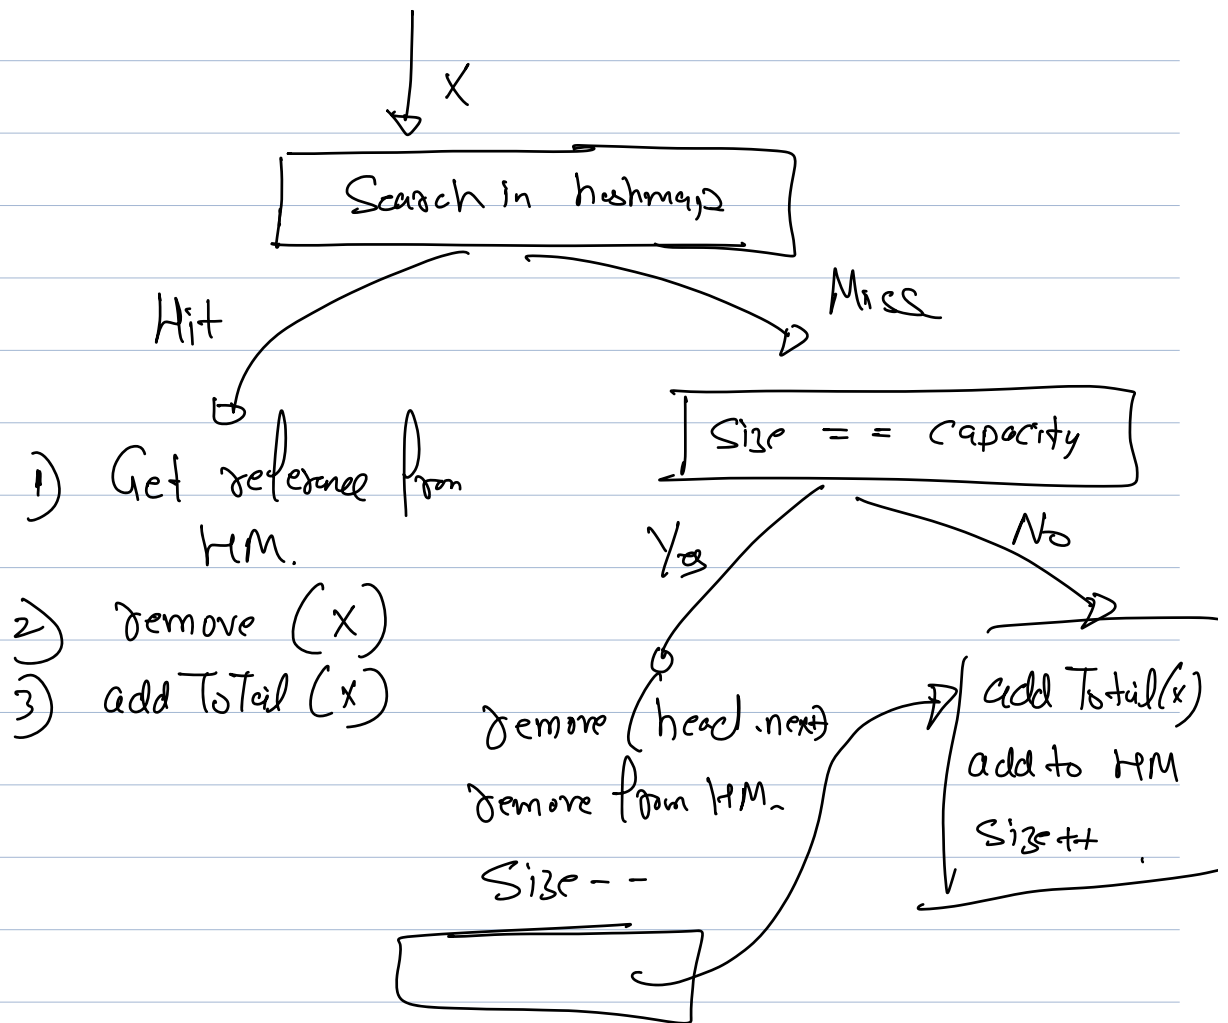 X
Search in hashmap
Hit
Miss
Size == capacity
1) Get reference from
HM.
2) remove (x)
3) add ToTail (x)
Yes
No
remove (head.next)
remove from HM.
Size--
add Totail(x)
add to HM
Size++